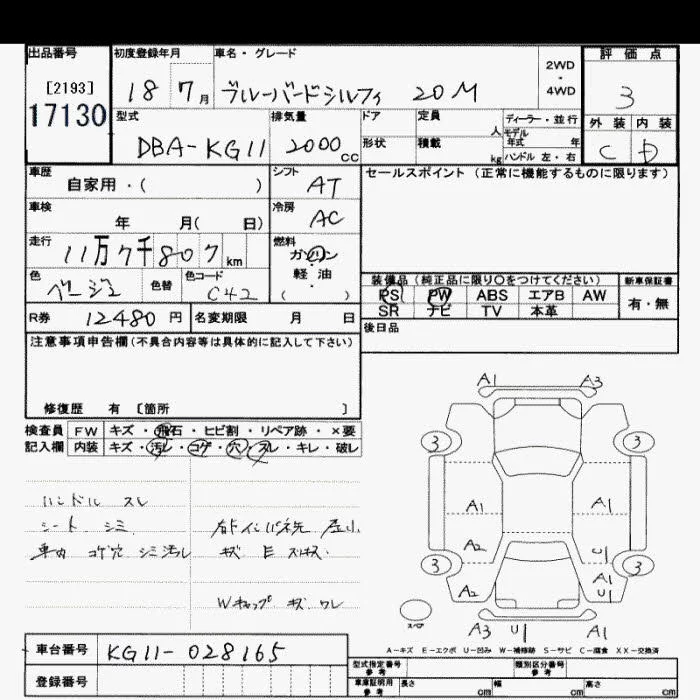 出品番号 初度登録年月 車名・グレード 2WD・4WD 評価点
[2193] 18 7月 ブルーバードシルフィ 20M 3
17130 型式 排気量 ドア 定員 人 ディーラー・並行 外装 内装
DBA-KG11 2000cc 形状 積載 kg モデル年式 年 C D
ハンドル 左・右
車歴 シフト セールスポイント (正常に機能するものに限ります)
自家用・( ) AT
車検 冷房
年 月( 日) AC
走行 燃料
11万7千807km ガソリン
軽油
( )
色 色替 色コード 装備品 (純正品に限り○をつけてください) 新車保証書
ベージュ C42 PS PW ABS エアB AW 有・無
SR ナビ TV 本革
R券 12480円 名変期限 月 日 後日品
注意事項申告欄(不具合内容等は具体的に記入して下さい)
修復歴 有 [箇所 ]
検査員 FW キズ・飛石・ヒビ割・リペア跡・×要
記入欄 内装 キズ・汚レ・コゲ・穴・スレ・キレ・破レ
ハンドル スレ
シート シミ
車内 コゲ穴 シミ汚レ
キズ E
Wキャップ キズ ワレ
A1 A3
3 3
A1 A1
A2 U1
3 A1 3
A2 U1
A3 U1 A1
A-キズ E-エクボ U-凹み W-補修跡 S-サビ C-腐食 XX-交換済
車台番号 KG11-028165
登録番号
型式指定番号 参考 類別区分番号 参考
車庫証明用 参考 長さ cm 幅 cm 高さ cm